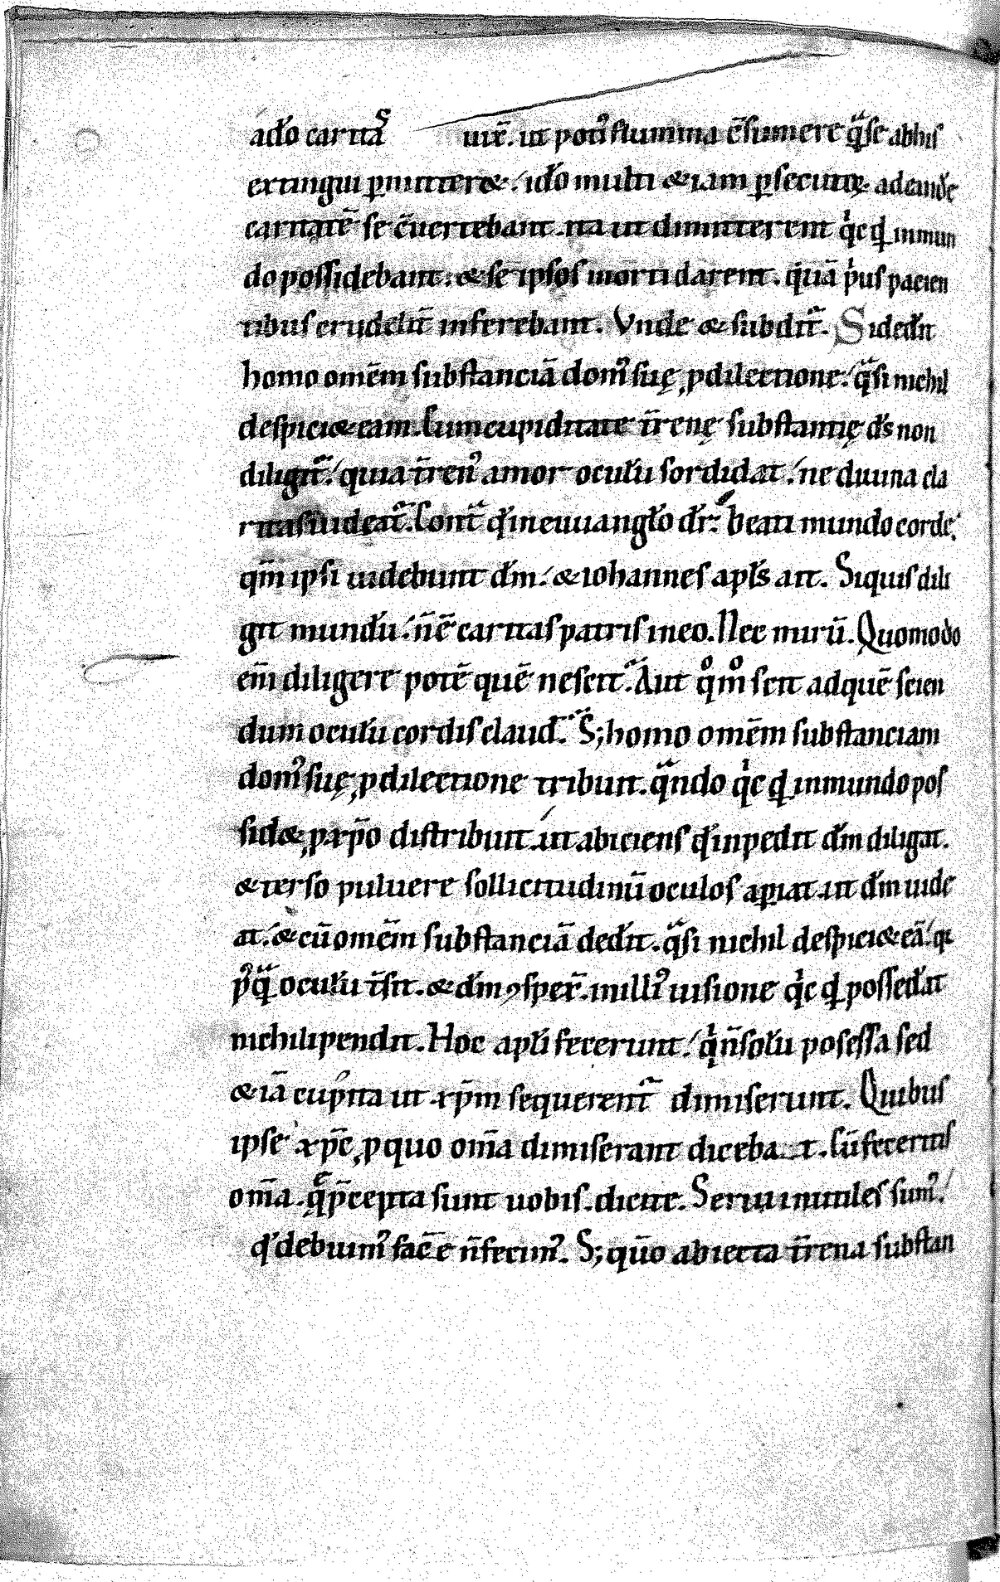 adõ caritaˢ uix̄. ut potiꝰ flumina c̄sumere qͣ̄ se ab his
extingui p̱mitteret. idõ multi & iam p̱secutę ad eand̃e
caritatē se c̄uertebant. ita ut dimitterent qͥcqͩ in mun
do possidebant. & se ipsos morti darent. quā pͥus pacien
tibus crudelit̄ inferebant. Vnde & subdit᷑. Si dedit̃
homo omēm substanciā domꝰ suę ꝓ dilectione. qͣsi nichil
despiciet eam. Cum cupiditate t̄renę substantię ds̃ non
diligit᷑. quia t̄renꝰ amor oculũ sordidat. ne diuina cla
ritas uideat᷑. Contͣ qd̃ in euuangl̃o dr̃. Beati mundo corde.
qm̄ ipsi uidebunt dm̃. & iohannes apl̃s ait. Si quis dili
git mundũ. n̄ ē caritas patris in eo. Nec mirū. Quomodo
eīm diligere potē quē nescit. Aut qͦmͦ scit ad quē scien
dum oculũ cordis claud̃. S; homo omēm substanciam
domꝰ suę ꝓ dilectione tribuit. qͣndo qͥcqͩ in mundo pos
sidet, ꝓ xp̄o distribuit. ut abiciens qd̃ inpedit dm̃ diligat.
& terso puluere sollicitudinū oculos ap̱iat ut dm̃ uide
at. & cū omēm substanciā dedit̃. qͣsi nichil despiciet eā. qꝛ
pꝰqͣ̄ oculũ t̄sit. & dm̃ ꝯsper̄. illiꝰ uisione qͥcqͩ possedãt
nichilipendit. Hoc apl̃i fecerunt. qͥ n̄ solũ posessa sed
& iā cupita ut xp̄m sequerent᷑ dimiserunt. Quibus
ipse xp̄c ꝓ quo om̄a dimiserant diceba t. Cū feceritis
om̄a. q̄ p̄cepta sunt uobis. dicite. Serui inutiles sumꝰ.
qd̃ debuimꝰ facē e n̄ fecimꝰ. S; quō abiecta t̄rena substan